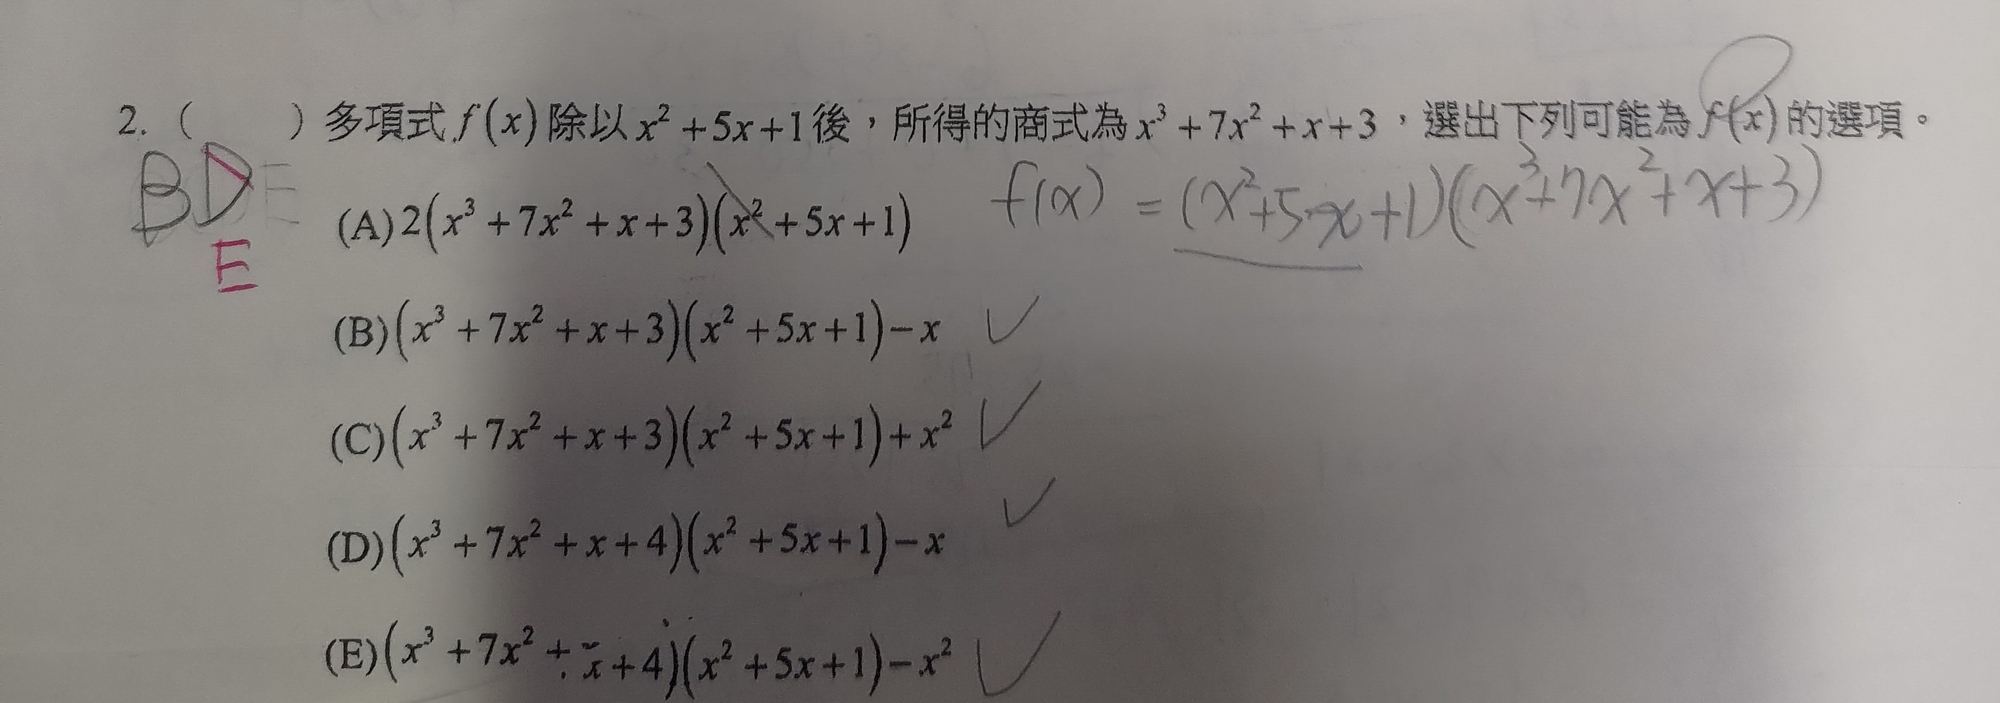 2. (    ) 多項式 f(x) 除以 x² + 5x + 1 後，所得的商式為 x³ + 7x² + x + 3，選出下列可能為 f(x) 的選項。
BDE
E
(A) 2(x³ + 7x² + x + 3)(x² + 5x + 1)
f(x) = (x² + 5x + 1)(x³ + 7x² + x + 3)
(B) (x³ + 7x² + x + 3)(x² + 5x + 1) − x
(C) (x³ + 7x² + x + 3)(x² + 5x + 1) + x²
(D) (x³ + 7x² + x + 4)(x² + 5x + 1) − x
(E) (x³ + 7x² + x + 4)(x² + 5x + 1) − x²